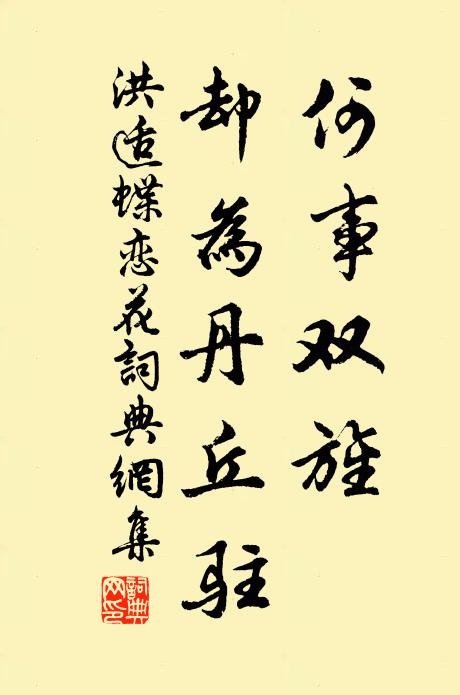 何事双旌
却為丹丘駐
洪适蝶恋花詞典網集
詞典網印